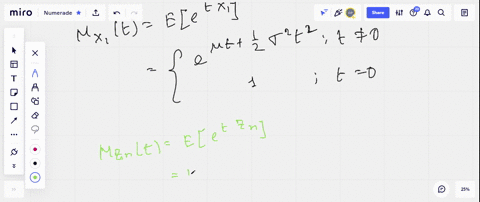 miro Numerade Share
M_{X_1}(t) = E[e^{tX_1}]
= { e^{μt + \frac{1}{2}σ^2t^2} ; t ≠ 0
1 ; t = 0
M_{Z_n}(t) = E[e^{tZ_n}]
=
25%